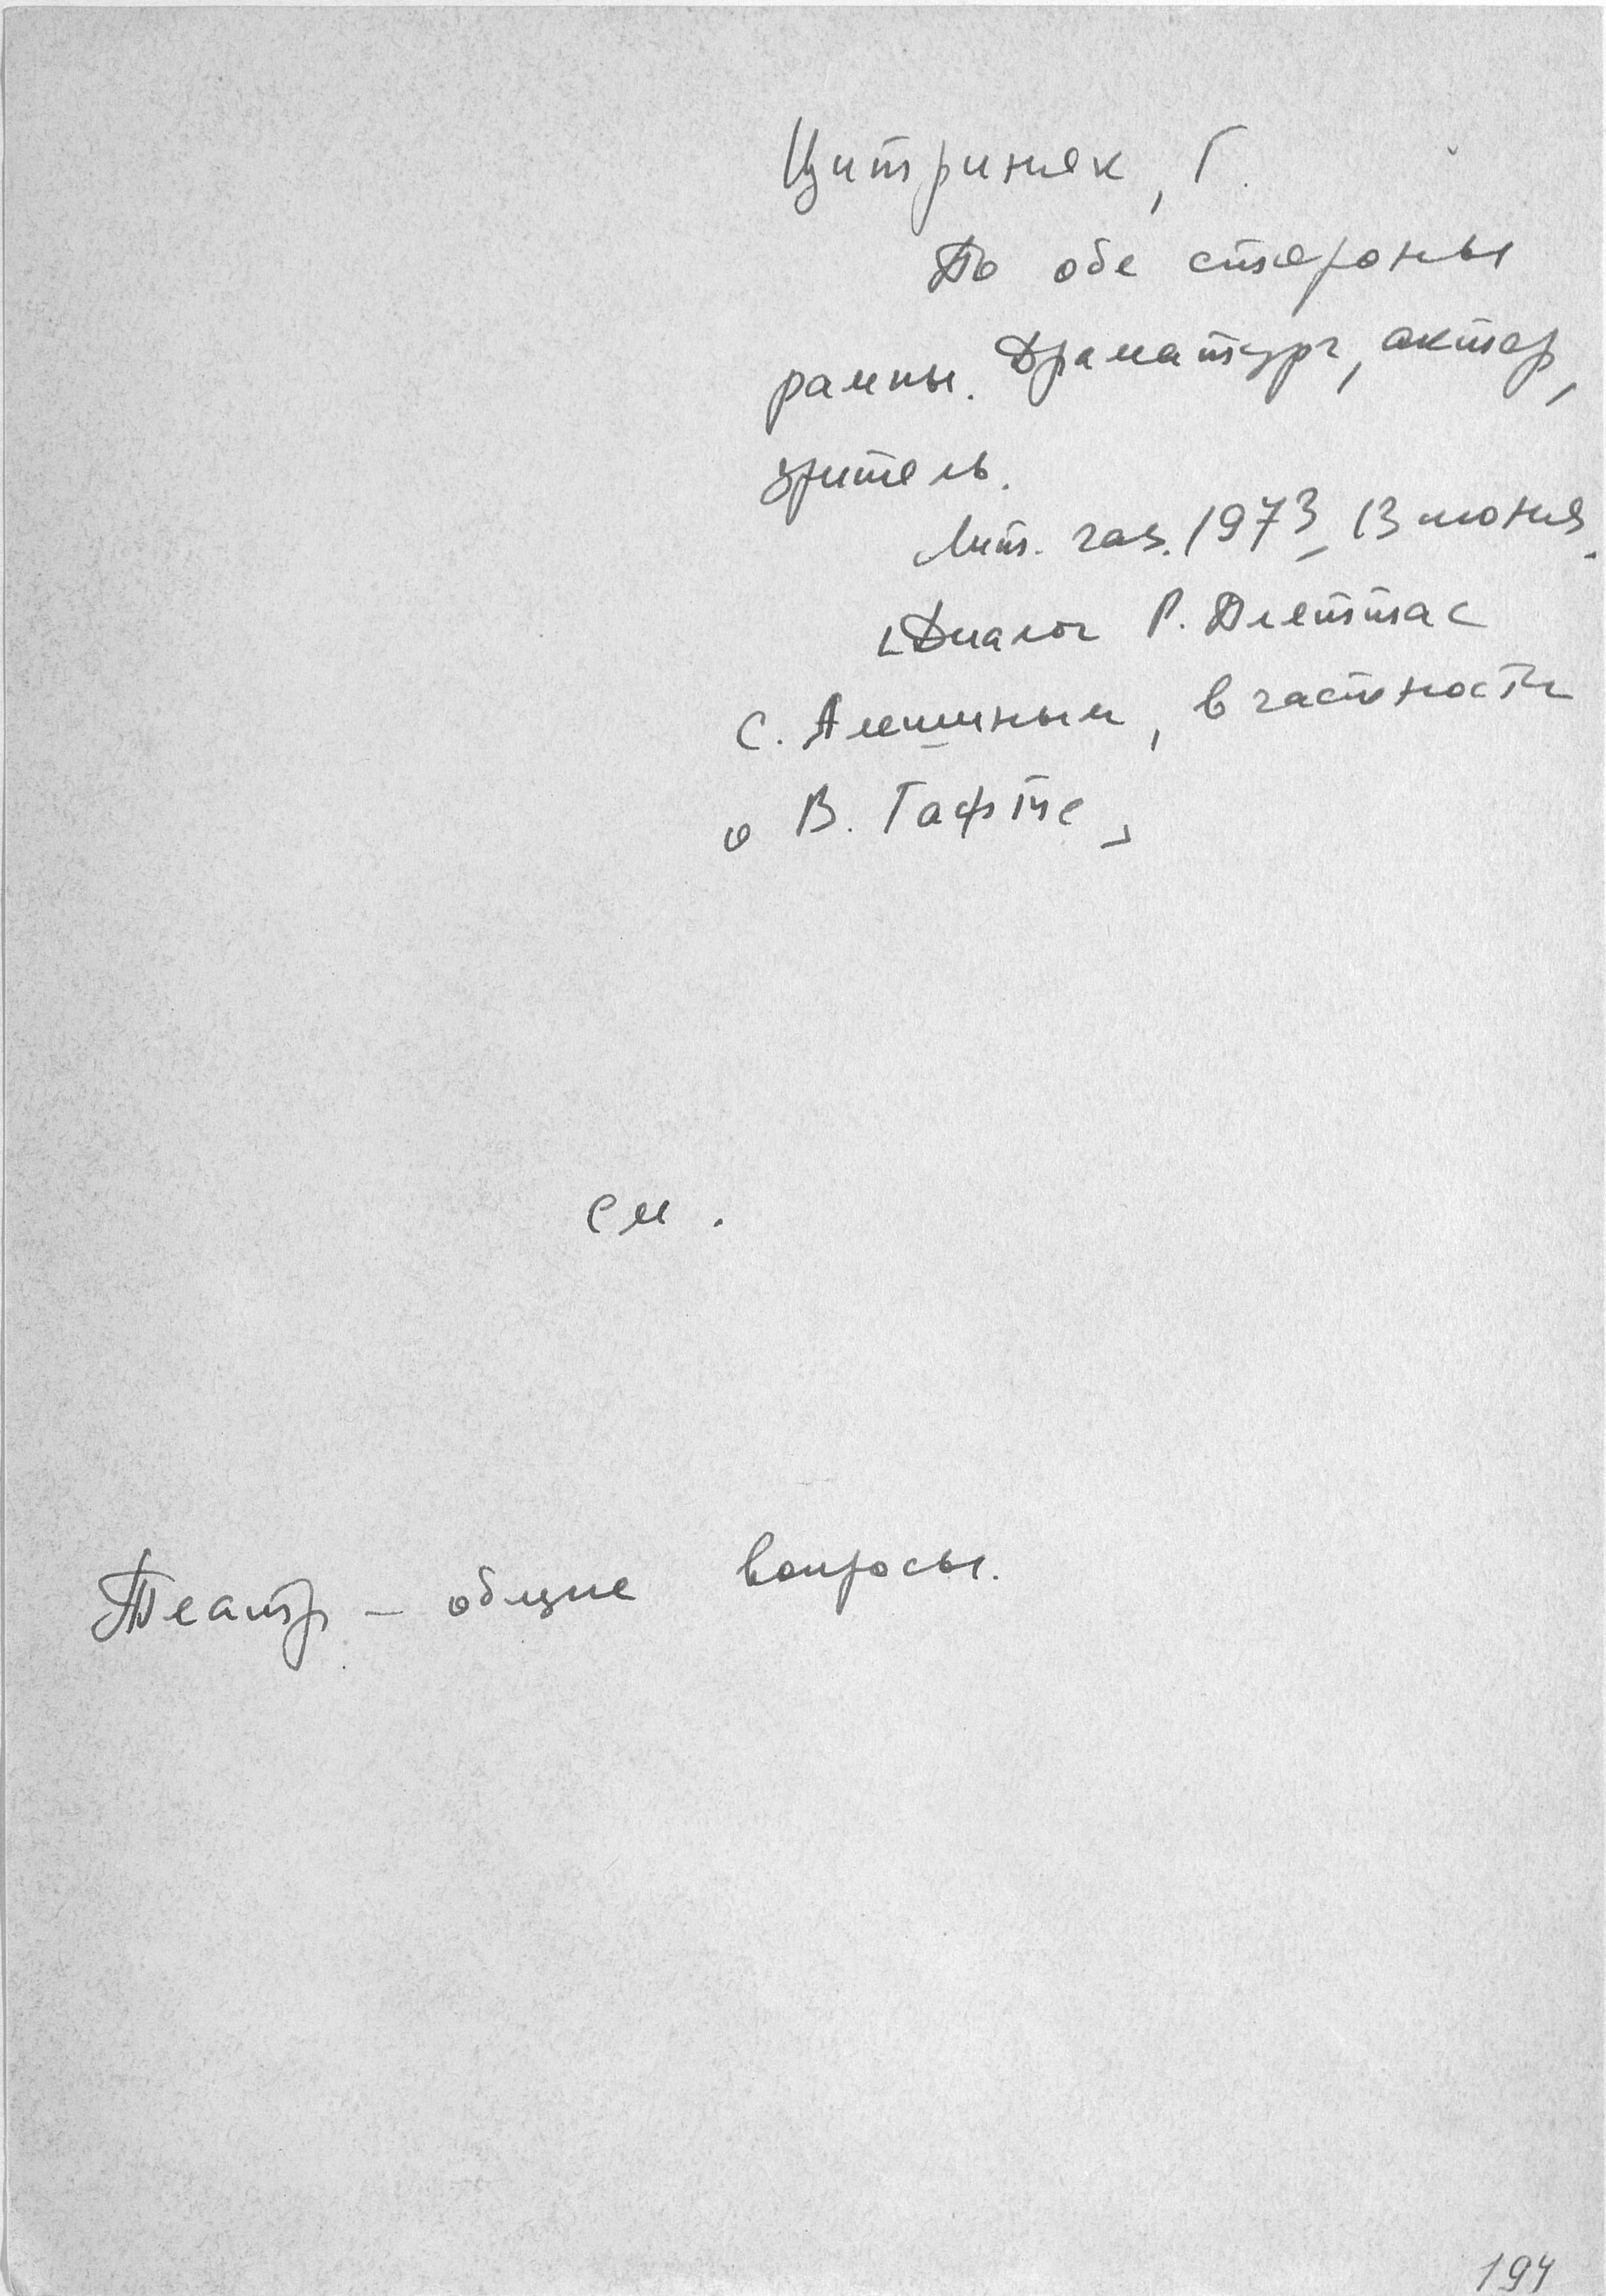 Цитриняк, Г.
По обе стороны
рампы. Драматург, актер,
зритель.
Лит. газ. 1973, 13 июня.
[Диалог Р. Плятта с
С. Алешиным, в частности
о В. Гафте]
см.
Театр – общие вопросы.
194